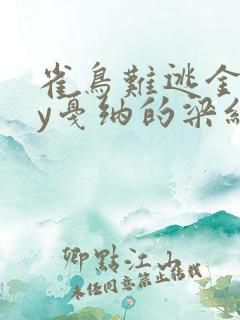 雀鳥難逃金
y戛纳的梁
卿點江山
未经同意禁止转载